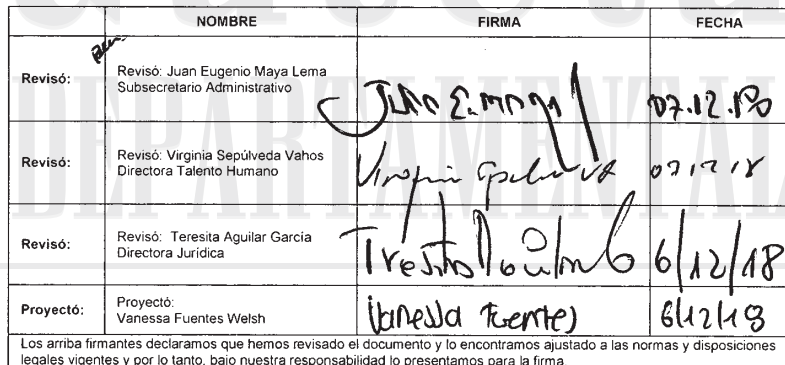 DEPARTAMENTAL
NOMBRE FIRMA FECHA
Revisó: Revisó: Juan Eugenio Maya Lema
Subsecretario Administrativo
Juan E. Maya 07.12.18
Revisó: Revisó: Virginia Sepúlveda Vahos
Directora Talento Humano
Virginia Sepulveda 07 12 18
Revisó: Revisó: Teresita Aguilar García
Directora Jurídica
Teresita Aguilar 6/12/18
Proyectó: Proyectó:
Vanessa Fuentes Welsh
Vanessa Fuentes 6/12/18
Los arriba firmantes declaramos que hemos revisado el documento y lo encontramos ajustado a las normas y disposiciones
legales vigentes y por lo tanto, bajo nuestra responsabilidad lo presentamos para la firma.